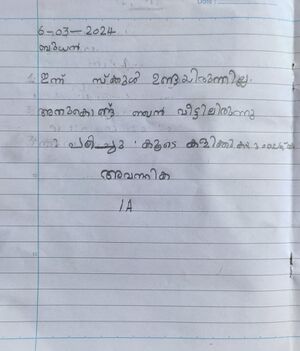 6-03-2024
ബുധൻ
ഇന്ന് സ്ക്കൂൾ ഉണ്ടായിരുന്നില്ല.
അതുകൊണ്ട് ഞാൻ വീട്ടിലിരുന്നു
പഠിച്ചു. കൂടെ കളിക്കുകയും
അവന്തിക
1A